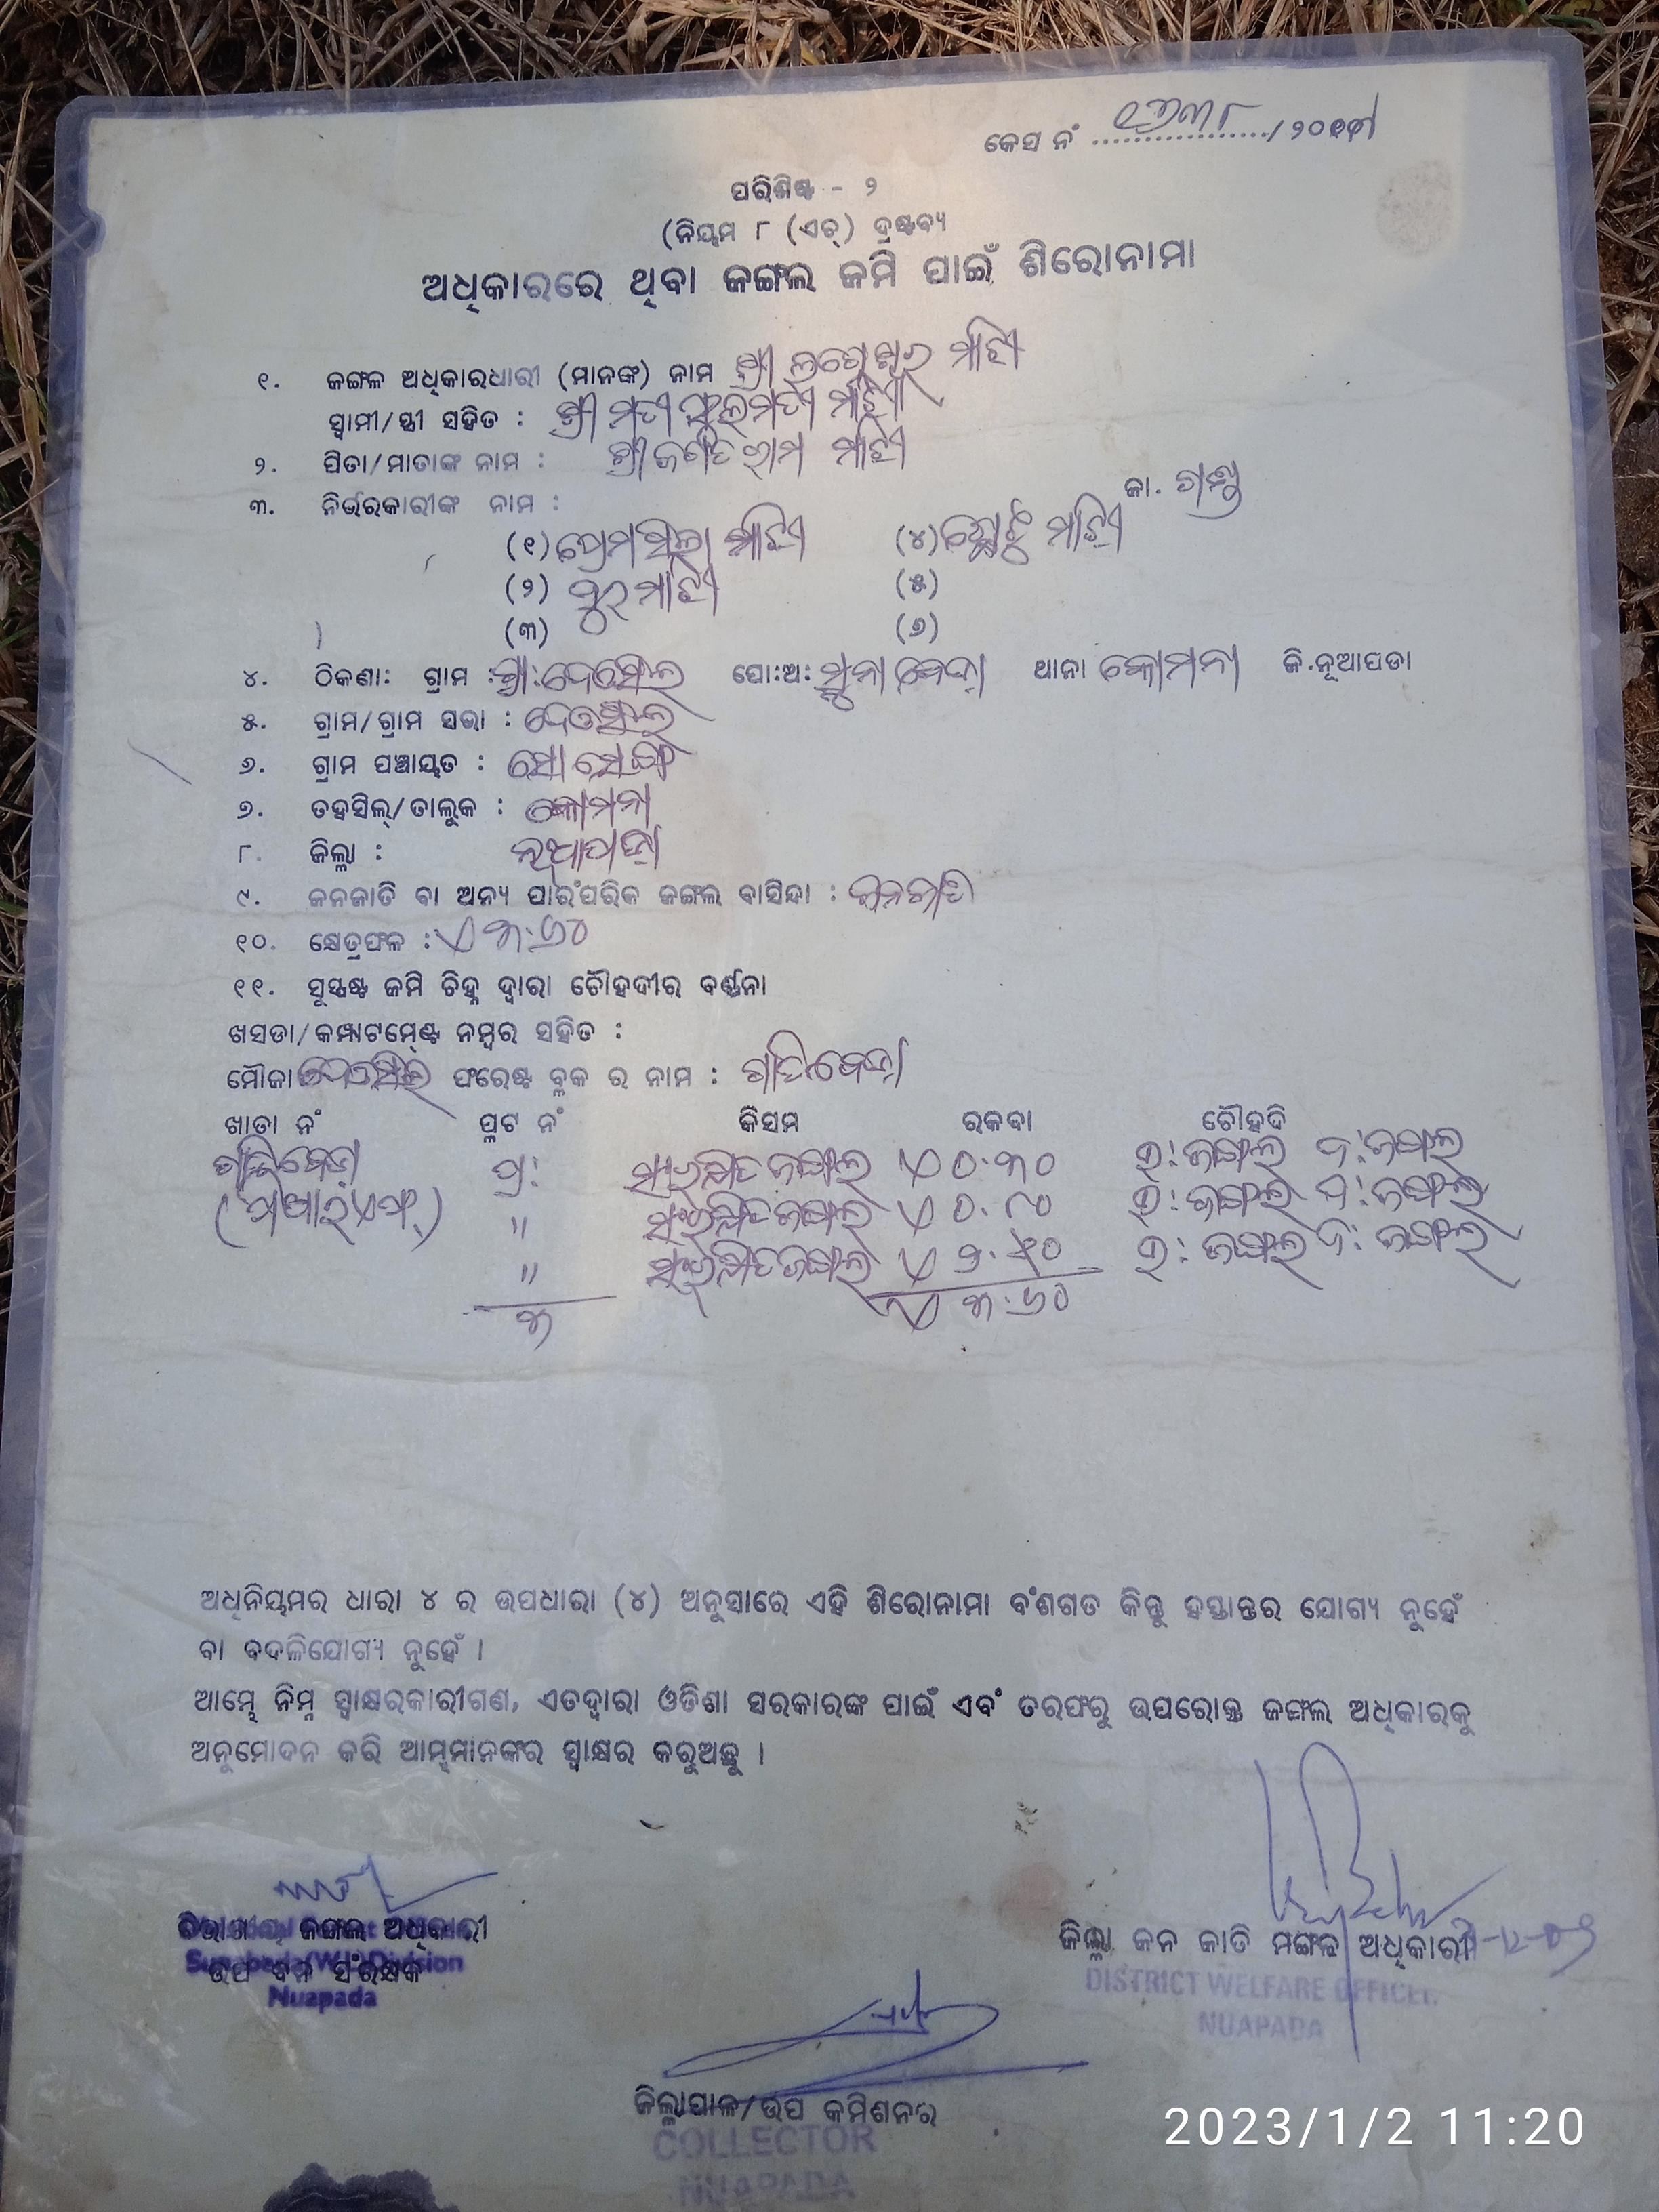 କେସ ନଂ ................../ ୨୦
ପରିଶିଷ୍ଟ - ୨
(ନିୟମ ୮ (ଏଚ୍) ଦ୍ରଷ୍ଟବ୍ୟ
ଅଧିକାରରେ ଥିବା ଜଙ୍ଗଲ ଜମି ପାଇଁ ଶିରୋନାମା
୧. ଜଙ୍ଗଳ ଅଧିକାରଧାରୀ (ମାନଙ୍କ) ନାମ ଶ୍ରୀ ମାଝୀ
ସ୍ବାମୀ/ସ୍ତ୍ରୀ ସହିତ : ଶ୍ରୀ ମତୀ ଫୁଲମତୀ ମାଝୀ
୨. ପିତା/ମାତାଙ୍କ ନାମ : ଶ୍ରୀ ମାଝୀ
ଜା. ଗଣ୍ଡ
୩. ନିର୍ଭରକାରୀଙ୍କ ନାମ :
(୧) ପ୍ରେମଶିଲା ମାଝୀ (୪) ମାଝୀ
(୨) ମାଝୀ (୫)
(୩) (୬)
୪. ଠିକଣା: ଗ୍ରାମ : ପୋ:ଅ: ସୁନାବେଡ଼ା ଥାନା କୋମନା ଜି.ନୂଆପଡା
୫. ଗ୍ରାମ/ଗ୍ରାମ ସଭା :
୬. ଗ୍ରାମ ପଞ୍ଚାୟତ :
୭. ତହସିଲ୍/ତାଲୁକ : କୋମନା
୮. ଜିଲ୍ଲା : ନୂଆପଡ଼ା
୯. ଜନଜାତି ବା ଅନ୍ୟ ପାରଂପରିକ ଜଙ୍ଗଲ ବାସିନ୍ଦା : ଜନଜାତି
୧୦. କ୍ଷେତ୍ରଫଳ : ଏ ୩.୬୦
୧୧. ସୁସ୍ପଷ୍ଟ ଜମି ଚିହ୍ନ ଦ୍ୱାରା ଚୌହଦୀର ବର୍ଣ୍ଣନା
ଖସଡା/କମ୍ପାଟମେଣ୍ଟ ନମ୍ବର ସହିତ :
ମୌଜା ଫରେଷ୍ଟ ବ୍ଳକ ର ନାମ :
ଖାତା ନଂ ପ୍ଲଟ ନଂ କିସମ ରକବା ଚୌହଦି
ପ୍ର: ସଂରକ୍ଷିତ ଜଙ୍ଗଲ ଏ ୦.୩୦ ଉ: ଜଙ୍ଗଲ ଦ: ଜଙ୍ଗଲ
(ପିଆରଏଫ୍) " ସଂରକ୍ଷିତ ଜଙ୍ଗଲ ଏ ୦.୮୦ ଉ: ଜଙ୍ଗଲ ଦ: ଜଙ୍ଗଲ
" ସଂରକ୍ଷିତ ଜଙ୍ଗଲ ଏ ୨.୫୦ ଉ: ଜଙ୍ଗଲ ଦ: ଜଙ୍ଗଲ
୩ ଏ ୩.୬୦
ଅଧିନିୟମର ଧାରା ୪ ର ଉପଧାରା (୪) ଅନୁସାରେ ଏହି ଶିରୋନାମା ବଂଶଗତ କିନ୍ତୁ ହସ୍ତାନ୍ତର ଯୋଗ୍ୟ ନୁହେଁ
ବା ବଦଳିଯୋଗ୍ୟ ନୁହେଁ ।
ଆମ୍ଭେ ନିମ୍ନ ସ୍ୱାକ୍ଷରକାରୀଗଣ, ଏତଦ୍ୱାରା ଓଡିଶା ସରକାରଙ୍କ ପାଇଁ ଏବଂ ତରଫରୁ ଉପରୋକ୍ତ ଜଙ୍ଗଲ ଅଧିକାରକୁ
ଅନୁମୋଦନ କରି ଆମ୍ଭମାନଙ୍କର ସ୍ୱାକ୍ଷର କରୁଅଛୁ ।
ବିଭାଗୀୟ ଜଙ୍ଗଲ ଅଧିକାରୀ
Sunabeda(W.L) Division
ଉପ ବନ ସଂରକ୍ଷକ
Nuapada
ଜିଲ୍ଲା ଜନ ଜାତି ମଙ୍ଗଳ ଅଧିକାରୀ
DISTRICT WELFARE OFFICER
NUAPADA
ଜିଲ୍ଲାପାଳ/ଉପ କମିଶନର
COLLECTOR
NUAPADA
2023/1/2 11:20